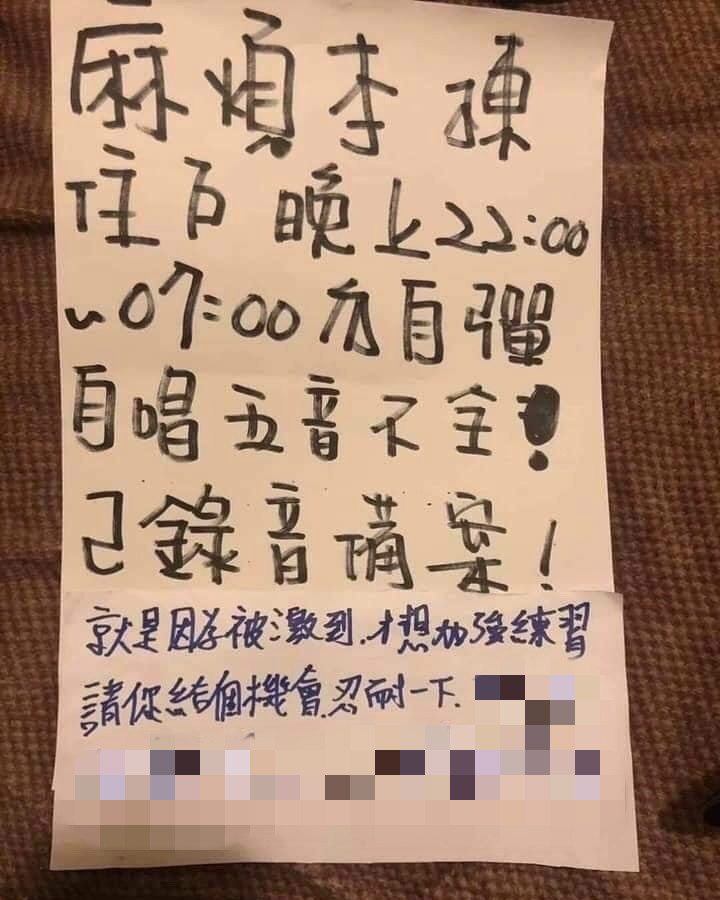 麻煩李
住戶 晚上22:00
~07:00勿自彈
自唱五音不全!
已錄音備案!
就是因為被激到.才想加強練習
請你給個機會.忍耐一下.